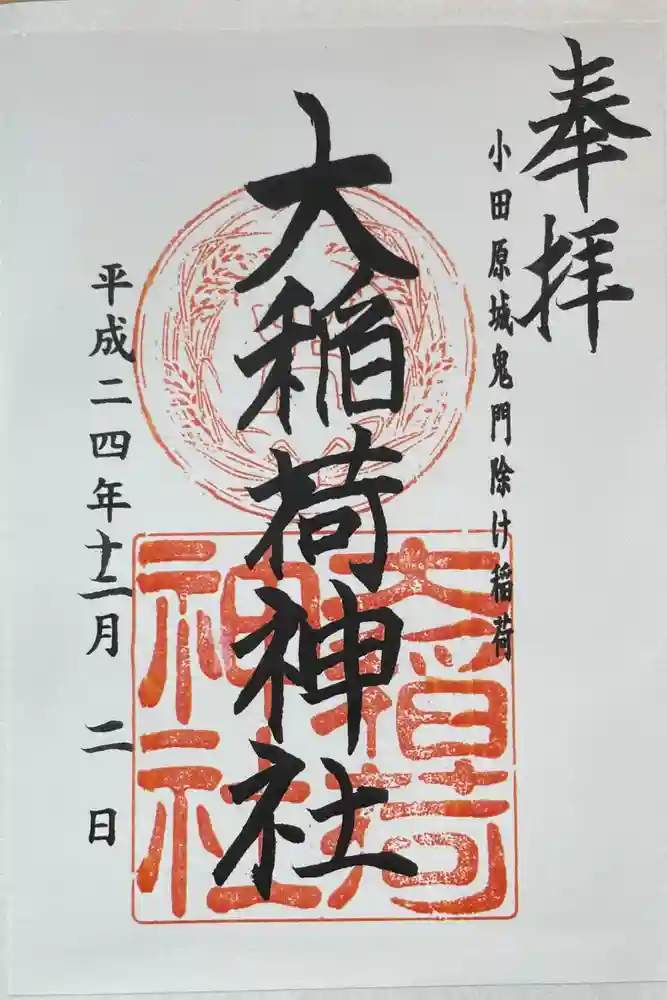 奉拝
小田原城鬼門除け稲荷
大稲荷神社
大稲荷
神社
平成二四年十二月二日